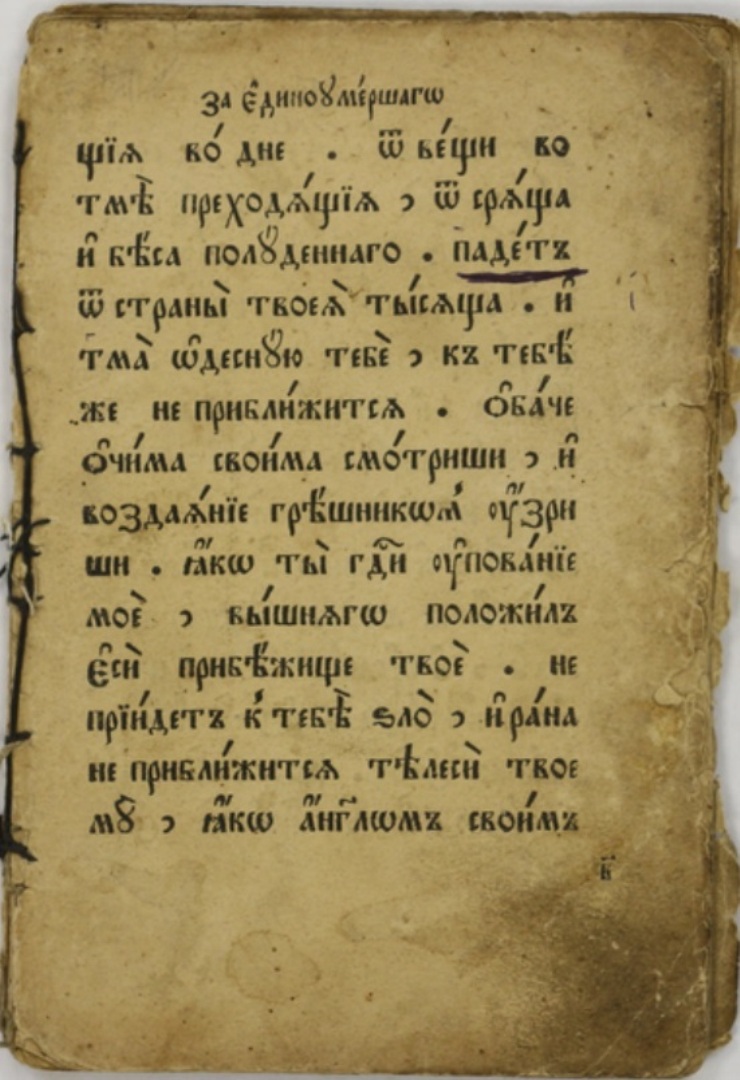 за є҆диноꙋме́ршагѡ
щїѧ во́ дне . ѿ ве́щи во
тмѣ̀ преходѧ́щїѧ , ѿ срѧ́ща
и҆ бѣ́са полꙋ́деннаго . паде́тъ
ѿ страны̀ твоеѧ̀ ты́сѧща . и҆
тма̀ ѡ҆деснꙋ́ю тебѐ , къ тебѣ́
же не прибли́житсѧ . ѻ҆ба́че
ѻ҆чи́ма свои́ма смо́триши , и҆
воздаѧ́нїе грѣ́шникѡм̾ ᲂу҆́зри
ши . ꙗ҆́кѡ ты̀ гдⷭ҇и ᲂу҆пова́нїе
моѐ , вы́шнѧгѡ положи́лъ
є҆сѝ прибѣ́жище твоѐ . не
прїи́детъ к̾ тебѣ̀ ѕло̀ , и҆ ра́на
не прибли́житсѧ тѣлесѝ твое
мꙋ̀ , ꙗ҆́кѡ а҆́нг҃лѡмъ свои́мъ
в҃